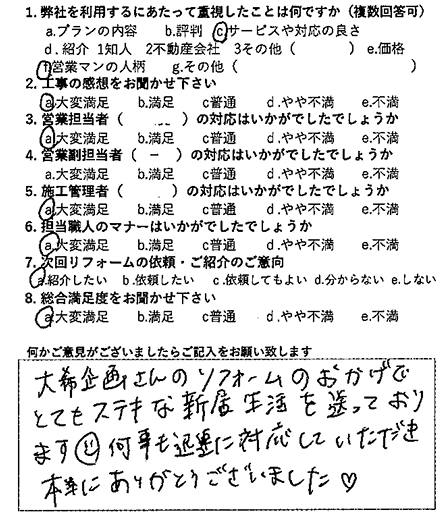 1. 弊社を利用するにあたって重視したことは何ですか（複数回答可）
a.プランの内容 b.評判 c.サービスや対応の良さ
d.紹介 1知人 2不動産会社 3その他（ ） e.価格
f.営業マンの人柄 g.その他（ ）
2. 工事の感想をお聞かせ下さい
a.大変満足 b.満足 c普通 d.やや不満 e.不満
3. 営業担当者（ ）の対応はいかがでしたでしょうか
a.大変満足 b.満足 c普通 d.やや不満 e.不満
4. 営業副担当者（ － ）の対応はいかがでしたでしょうか
a.大変満足 b.満足 c普通 d.やや不満 e.不満
5. 施工管理者（ ）の対応はいかがでしたでしょうか
a.大変満足 b.満足 c普通 d.やや不満 e.不満
6. 担当職人のマナーはいかがでしたでしょうか
a.大変満足 b.満足 c普通 d.やや不満 e.不満
7. 次回リフォームの依頼・ご紹介のご意向
a.紹介したい b.依頼したい c.依頼してもよい d.分からない e.しない
8. 総合満足度をお聞かせ下さい
a.大変満足 b.満足 c普通 d.やや不満 e.不満
何かご意見がございましたらご記入をお願い致します
大希企画さんのリフォームのおかげで
とてもステキな新居生活を送っており
ます 何事も迅速に対応していただき
本当にありがとうございました♡